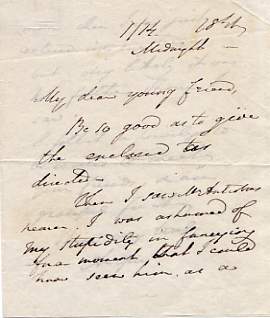 Midnight —
My dear young friend,
Be so good as to give
the enclosed as
directed —
When I saw Mr
heaven. I was ashamed of
my stupidity in fancying
for a moment, that I could
have seen him, as a